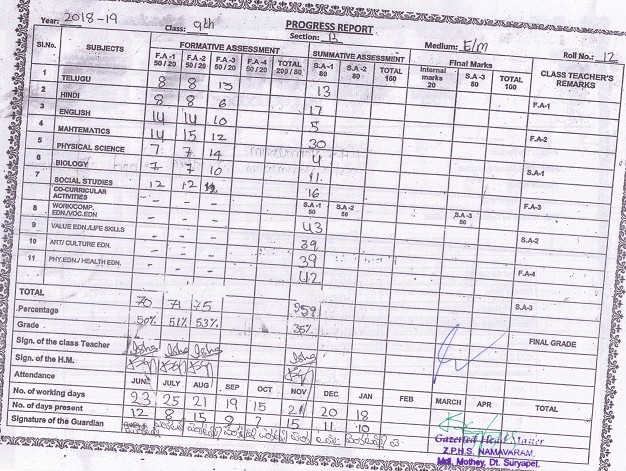 PROGRESS REPORT
Year: 2018-19 Class: 9th Section: B Medium: E/M Roll No.: 12
Sl.No. SUBJECTS FORMATIVE ASSESSMENT SUMMATIVE ASSESSMENT Final Marks CLASS TEACHER'S REMARKS
F.A -1 50 / 20 F.A -2 50 / 20 F.A -3 50 / 20 F.A -4 50 / 20 TOTAL 200 / 80 S.A -1 80 S.A -2 80 TOTAL 160 Internal marks 20 S.A -3 80 TOTAL 100
1 TELUGU 8 8 13 13 F.A-1
2 HINDI 8 8 6 17
3 ENGLISH 14 14 10 5 F.A-2
4 MAHTEMATICS 14 15 12 30
5 PHYSICAL SCIENCE 7 7 14 4 S.A-1
6 BIOLOGY 7 7 10 11
7 SOCIAL STUDIES 12 12 16 F.A-3
CO-CURRICULAR ACTIVITIES - - - S.A -1 50 S.A -2 50 S.A -3 50
8 WORK/COMP. EDN./VOC.EDN - - - 43 S.A-2
9 VALUE EDN./LIFE SKILLS - - - 39
10 ART/ CULTURE EDN. - - - 39 F.A-4
11 PHY.EDN./ HEALTH EDN. - - - 42
TOTAL 70 71 75 259 S.A-3
Percentage 50% 51% 53% 35%
Grade FINAL GRADE
Sign. of the class Teacher
Sign. of the H.M.
Attendance JUNE JULY AUG SEP OCT NOV DEC JAN FEB MARCH APR TOTAL
No. of working days 23 25 21 19 15 21 20 18
No. of days present 12 8 15 9 15 11 10
Signature of the Guardian
Gazetted Head Master
Z.P.H.S. NAMAVARAM,
Mdl, Mothey, Dt. Suryapet.